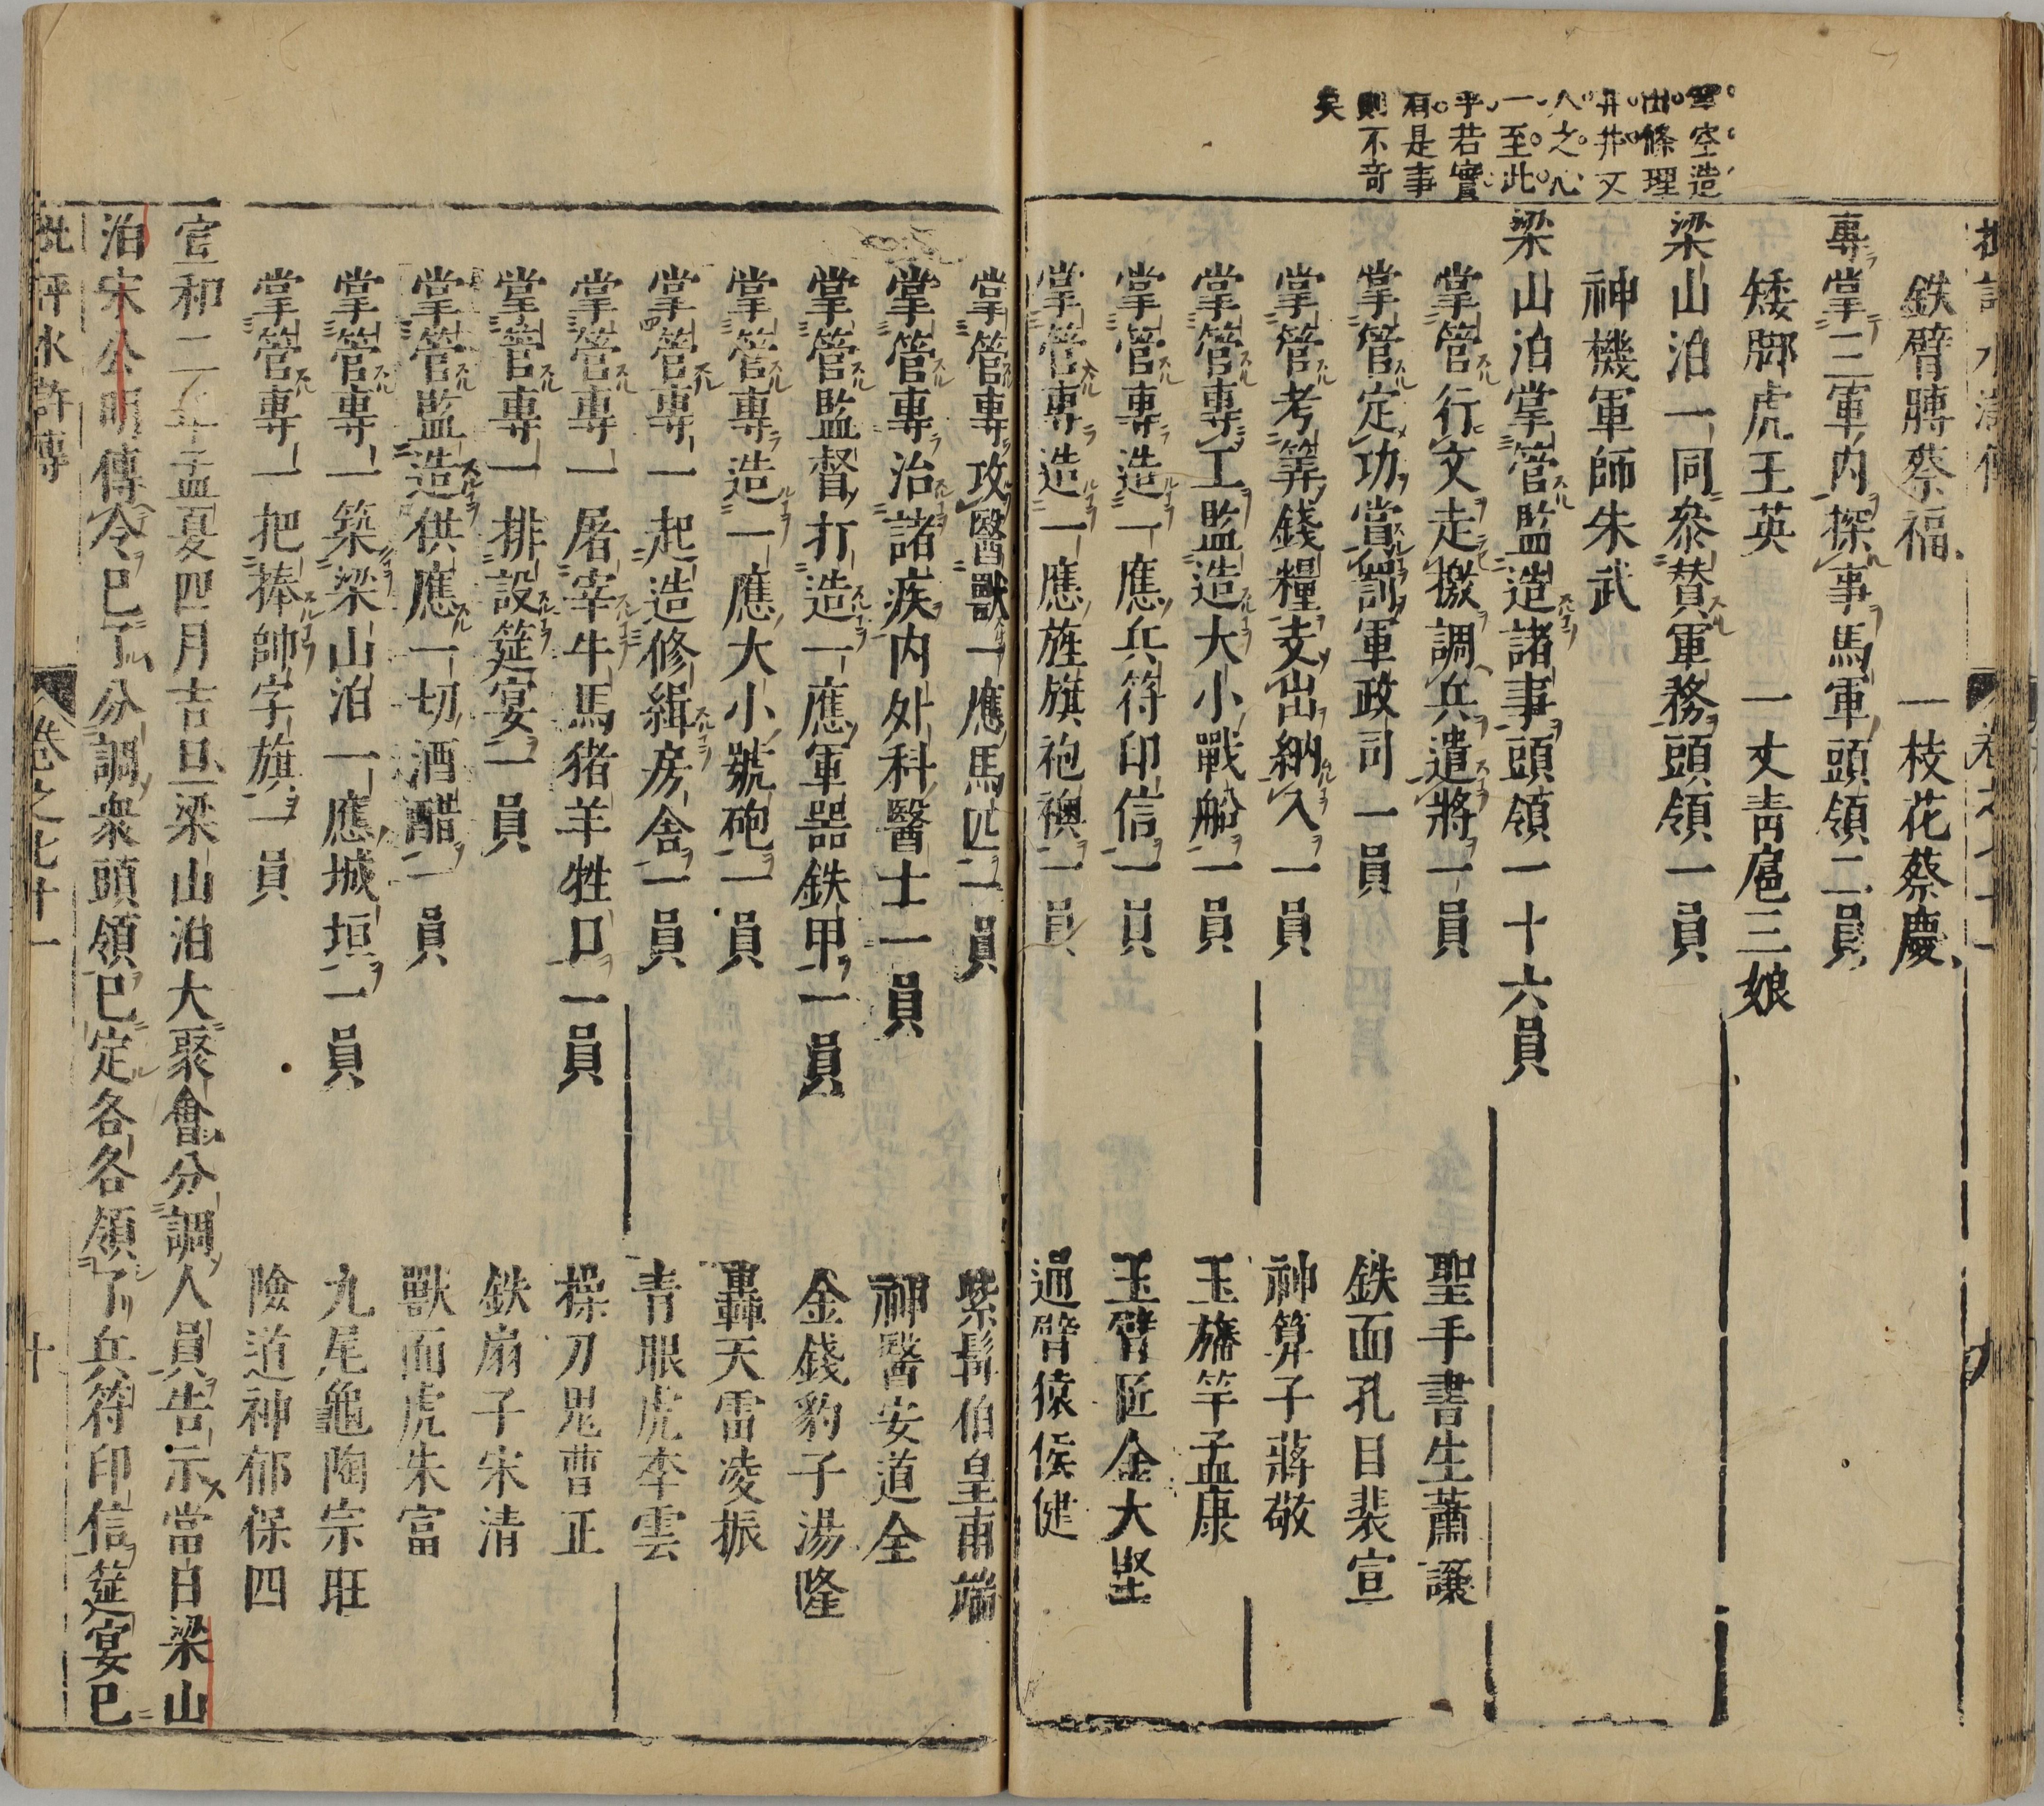 鑿空造
出條理
井井文
人之心
一至此
乎若實
有是事
則不竒
矣
鉄臂膊蔡福 一枝花蔡慶
專掌三軍内探事馬軍頭領二員
矮脚虎王英 一丈青扈三娘
梁山泊一同參賛軍務頭領一員
神機軍師朱武
梁山泊掌管監造諸事頭領一十六員
掌管行文走檄調兵遣將一員 聖手書生蕭讓
掌管定功賞罰軍政司一員 鉄面孔目裴宣
掌管考筭錢糧支出納入一員 神算子蔣敬
掌管專工監造大小戰船一員 玉旛竿孟康
掌管專造一應兵符印信一員 玉臂匠金大堅
掌管專造一應旌旗袍襖一員 通臂猿侯健
掌管專攻醫獸一應馬匹一員 紫髯伯皇甫端
掌管專治諸疾内外科醫士一員 神醫安道全
掌管監督打造一應軍器鉄甲一員 金錢豹子湯隆
掌管專造一應大小號砲一員 轟天雷凌振
掌管專一起造修緝房舍一員 青眼虎李雲
掌管專一屠宰牛馬猪羊牲口一員 操刀鬼曹正
掌管專一排設筵宴一員 鉄扇子宋清
掌管監造供應一切酒醋一員 獸面虎朱富
掌管專一築梁山泊一應城垣一員 九尾龜陶宗旺
掌管專一把捧帥字旗一員 險道神郁保四
宣和二年孟夏四月吉旦梁山泊大聚會分調人員告示當日梁山
泊宋公明傳令已了分調衆頭領已定各各領了兵符印信筵宴已
批評水滸傳 卷之七十一 十